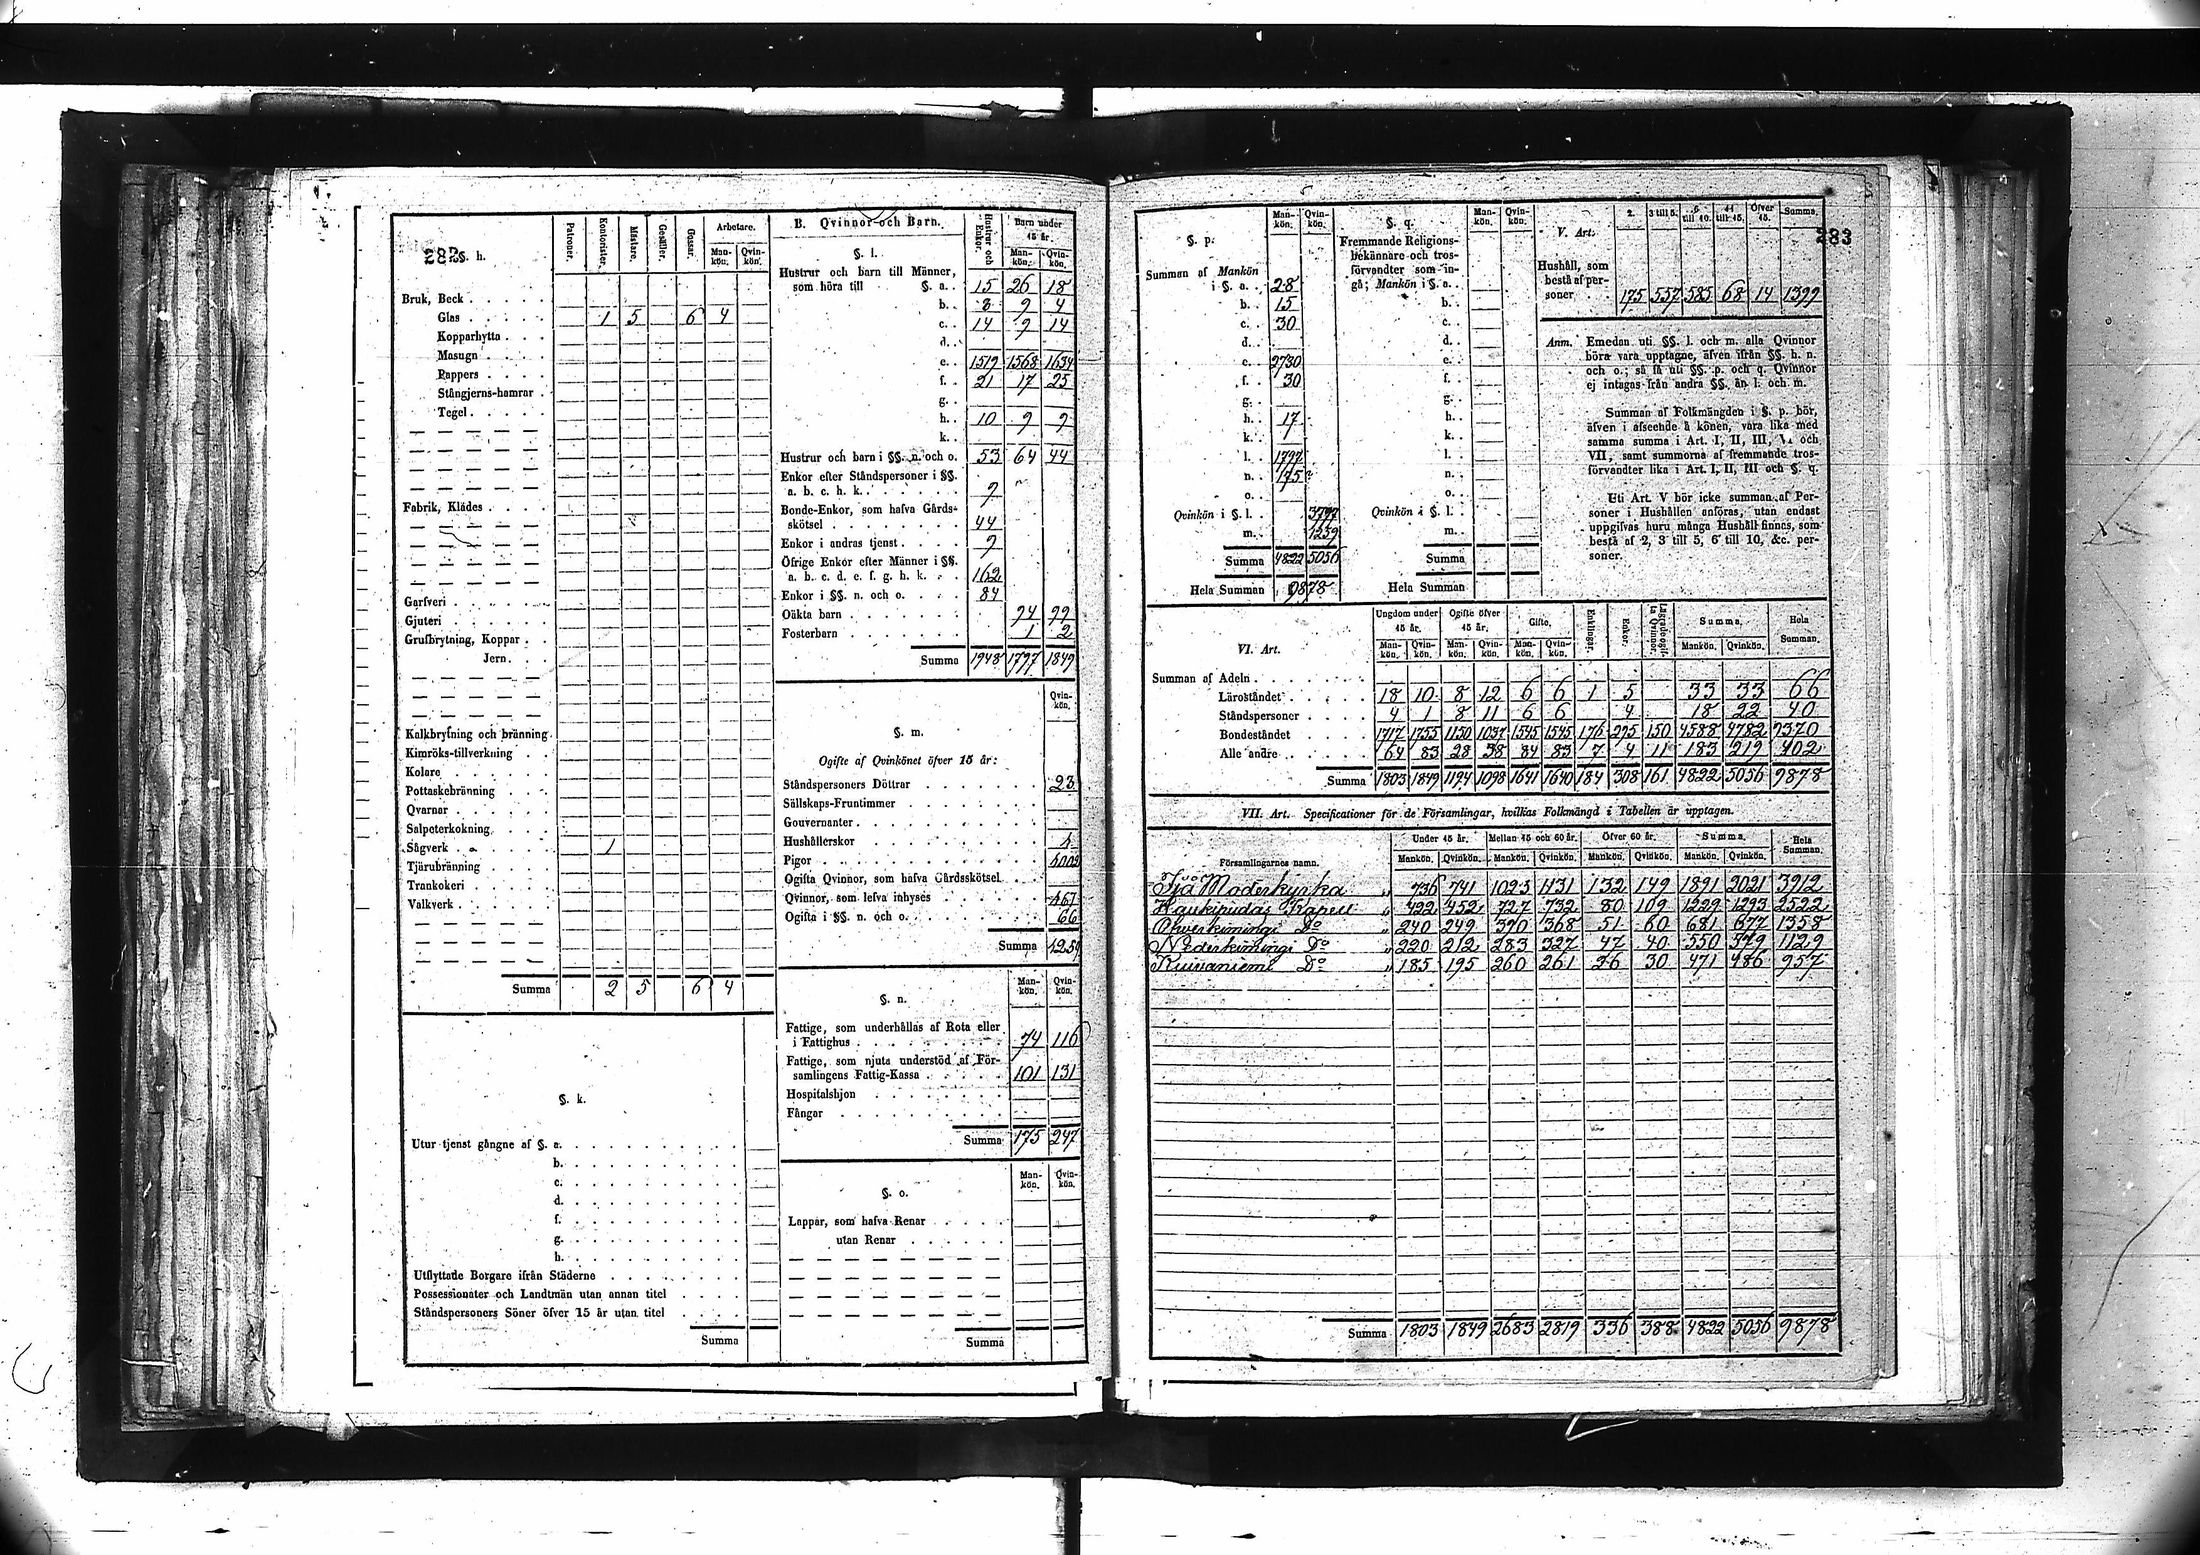 282 §. h.
Patroner. Kontorister. Mästare. Gesäller. Gossar. Arbetare.
Mankön. Qvinkön.
Bruk, Beck
Glas 1 5 6 4
Kopparhytta
Masugn
Pappers
Stångjerns-hamrar
Tegel
Fabrik, Klädes
Garfveri
Gjuteri
Grufbrytning, Koppar
Jern
Kalkbrytning och bränning
Kimröks-tillverkning
Kolare
Pottaskebränning
Qvarnar
Salpeterkokning
Sågverk 1
Tjärubränning
Trankokeri
Valkverk
Summa 2 5 6 4
§. k.
Utur tjenst gångne af §. a.
b.
c.
d.
f.
g.
h.
Utflyttade Borgare ifrån Städerne
Possessionater och Landtmän utan annan titel
Ståndspersoners Söner öfver 15 år utan titel
Summa
B. Qvinnor och Barn.
Hustrur och Enkor. Barn under 15 år.
Mankön. Qvinkön.
§. l.
Hustrur och barn till Männer,
som höra till §. a. 15 26 18
b. 8 9 4
c. 14 9 14
d.
e. 1519 1568 1634
f. 21 17 25
g.
h. 10 9 9
k.
Hustrur och barn i §§. n. och o. 53 64 44
Enkor efter Ståndspersoner i §§.
a. b. c. h. k. 9
Bonde-Enkor, som hafva Gårds-
skötsel 44
Enkor i andras tjenst 9
Öfrige Enkor efter Männer i §§.
a. b. c. d. e. f. g. h. k. 162
Enkor i §§. n. och o. 84
Oäkta barn 94 99
Fosterbarn 1 2
Summa 1948 1797 1849
§. m.
Qvinkön.
Ogifte af Qvinkönet öfver 15 år:
Ståndspersoners Döttrar 23
Sällskaps-Fruntimmer
Gouvernanter
Hushållerskor
Pigor
Ogifta Qvinnor, som hafva Gårdsskötsel
Qvinnor, som lefva inhyses
Ogifta i §§. n. och o. 66
Summa 1259
§. n.
Mankön. Qvinkön.
Fattige, som underhållas af Rota eller
i Fattighus 74 116
Fattige, som njuta understöd af För-
samlingens Fattig-Kassa 101 131
Hospitalshjon
Fångar
Summa 175 247
§. o.
Mankön. Qvinkön.
Lappar, som hafva Renar
utan Renar
Summa
283
§. p.
Mankön. Qvinkön.
Summan af Mankön
i §. a. 28
b. 15
c. 30
d.
e. 2730
f. 30
g.
h. 17
k.
l. 1797
n. 175
o.
Qvinkön i §. l. 3797
m. 1259
Summa 4822 5056
Hela Summan 9878
§. q.
Mankön. Qvinkön.
Fremmande Religions-
bekännare och tros-
förvandter som in-
gå; Mankön i §. a.
b.
c.
d.
e.
f.
g.
h.
k.
l.
n.
o.
Qvinkön i §. l.
m.
Summa
Hela Summan
V. Art.
2. 3 till 5. 6 till 10. 11 till 15. Öfver 15. Summa.
Hushåll, som
bestå af per-
soner 175 557 585 68 14 1399
Anm. Emedan uti §§. l. och m. alla Qvinnor
böra vara upptagne, äfven ifrån §§. h. n.
och o.; så få uti §§. p. och q. Qvinnor
ej intagas från andra §§. än l. och m.
Summan af Folkmängden i §. p. bör,
äfven i afseende å könen, vara lika med
samma summa i Art. I, II, III, VI och
VII, samt summorna af fremmande tros-
förvandter lika i Art. I, II, III och §. q.
Uti Art. V bör icke summan af Per-
soner i Hushållen anföras, utan endast
uppgifvas huru många Hushåll finnes, som
bestå af 2, 3 till 5, 6 till 10, &c. per-
soner.
VI. Art.
Ungdom under 15 år. Ogifte öfver 15 år. Gifte. Enklingar. Enkor. Lägrade ogifta Qvinnor. Summa. Hela Summan.
Mankön. Qvinkön. Mankön. Qvinkön. Mankön. Qvinkön. Mankön. Qvinkön.
Summan af Adeln
Läroståndet 18 10 8 12 6 6 1 5 33 33 66
Ståndspersoner 4 1 8 11 6 6 4 18 22 40
Bondeståndet 1717 1755 1150 1037 1545 1545 176 295 150 4588 4782 9370
Alle andre 64 83 28 38 84 83 7 4 11 183 219 402
Summa 1803 1849 1194 1098 1641 1640 184 308 161 4822 5056 9878
VII. Art. Specificationer för de Församlingar, hvilkas Folkmängd i Tabellen är upptagen.
Församlingarnes namn. Under 15 år. Mellan 15 och 60 år. Öfver 60 år. Summa. Hela Summan.
Mankön. Qvinkön. Mankön. Qvinkön. Mankön. Qvinkön. Mankön. Qvinkön.
Ijå Moderkyrka " 736 741 1023 1131 132 149 1891 2021 3912
Haukipudas Kapell " 422 452 727 732 80 109 1229 1293 2522
Öfverkimingi Do " 240 249 390 368 51 60 681 677 1358
Nederkimingi Do " 220 212 283 327 47 40 550 579 1129
Kuivaniemi Do " 185 195 260 261 26 30 471 486 957
Summa 1803 1849 2683 2819 336 388 4822 5056 9878